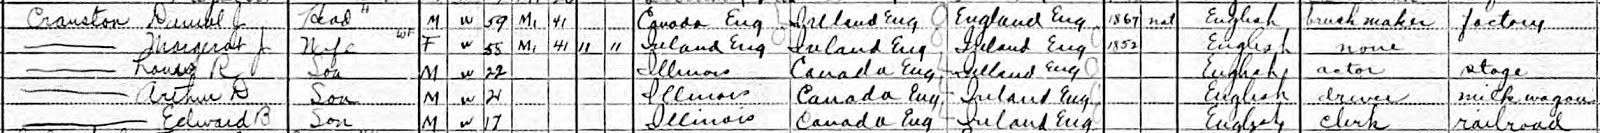 Cranston Daniel J Head M W 59 M1 41 Canada Eng Ireland Eng England Eng 1867 nat English brush maker factory
Margaret J Wife F W 58 M1 41 " " Ireland Eng Ireland Eng Ireland Eng 1852 English none
Louis R Son M W 22 Illinois Canada Eng Ireland Eng English actor stage
Arthur D Son M W 21 Illinois Canada Eng Ireland Eng English driver milk wagon
Edward B Son M W 17 Illinois Canada Eng Ireland Eng English clerk railroad